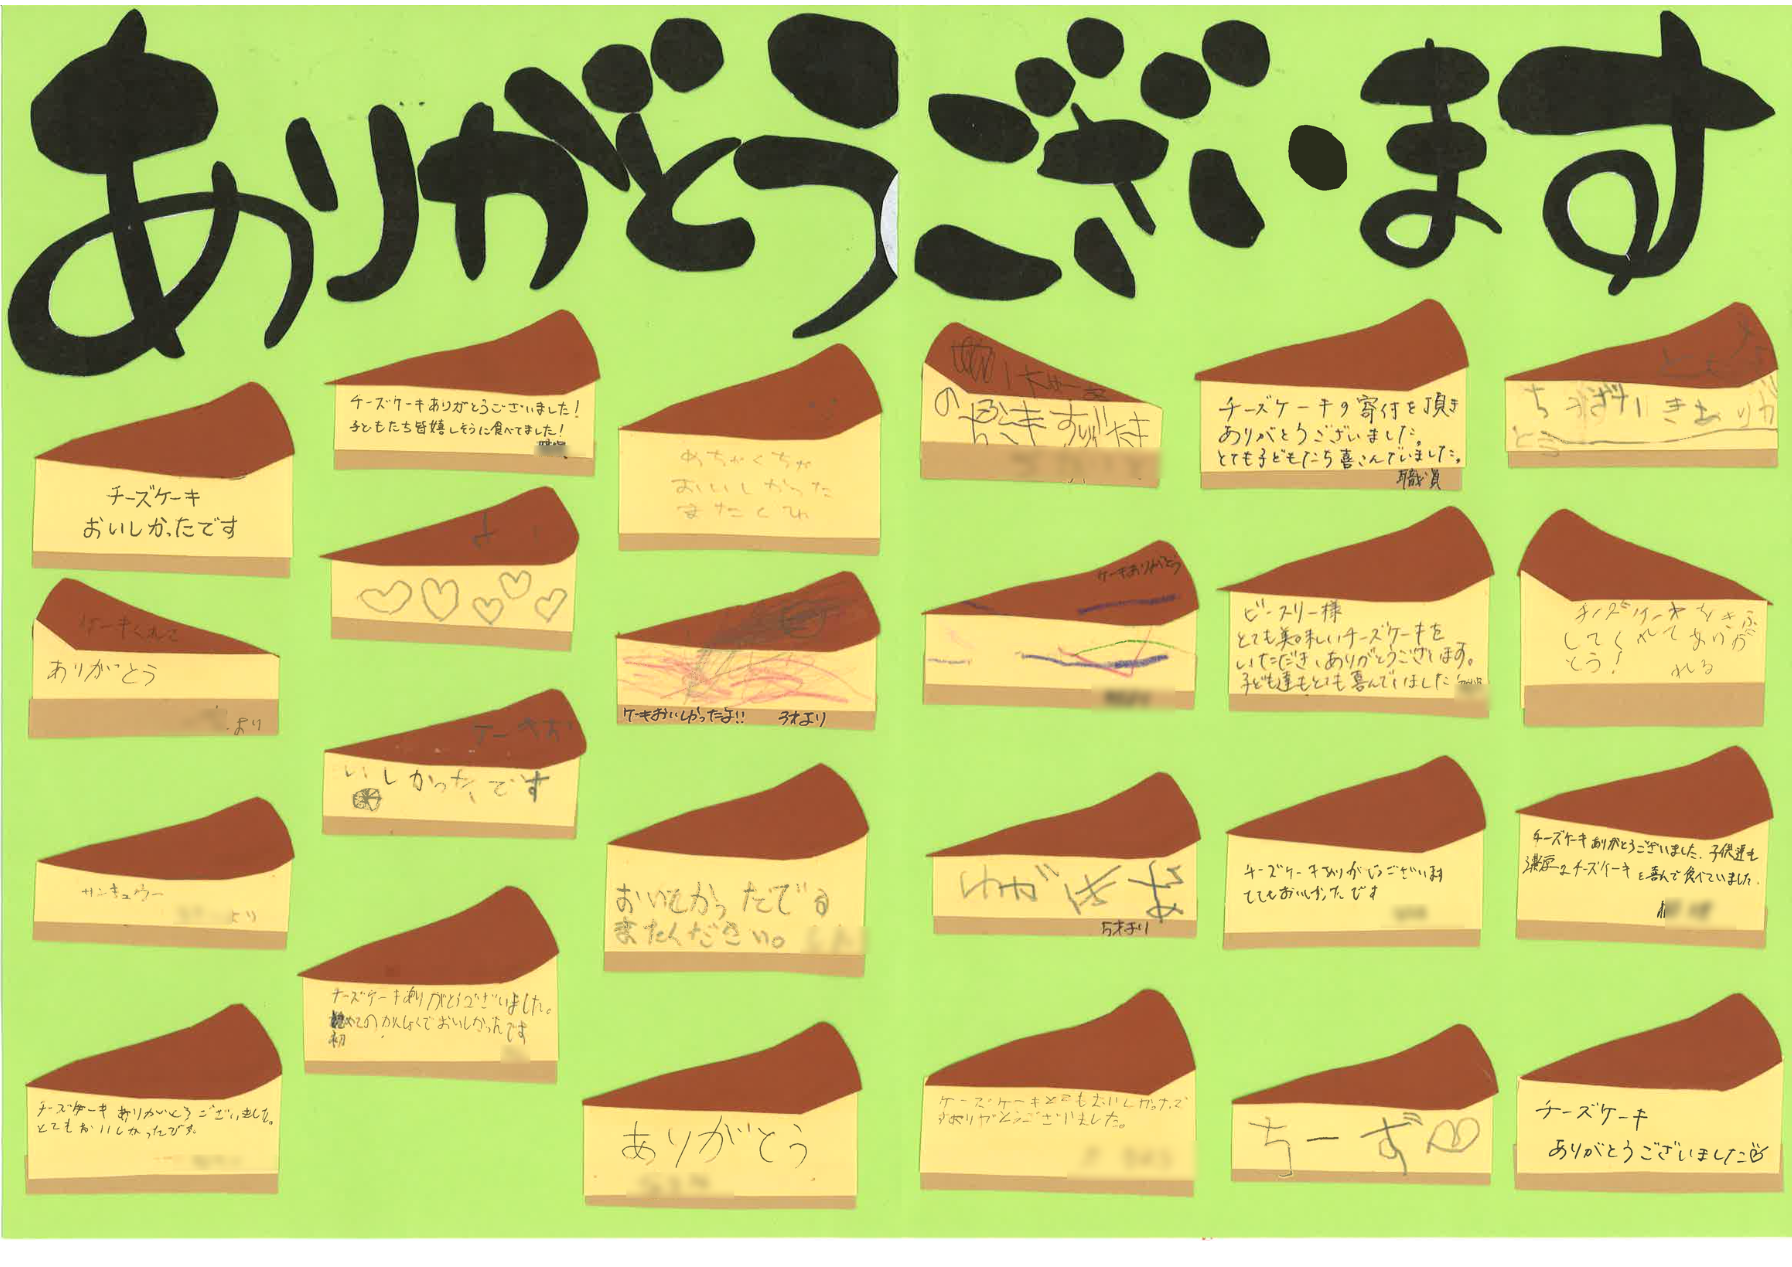 ありがとうございます
チーズケーキ
おいしかったです
ありがとう
より
サンキュウー
より
チーズケーキ ありがとうございました。
とてもおいしかったです。
チーズケーキありがとうございました!
子どもたち皆嬉しそうに食べてました!
ケーキお
いしかったです
チーズケーキありがとうございました。
初
めちゃくちゃ
おいしかった
またくれ
ケーキおいしかったよ!! 3才より
おいしかったです
またください。
ありがとう
ケーキありがとう
5才より
チーズケーキとてもおいしかったで
すありがとうございました。
チーズケーキの寄付を頂き
ありがとうございました。
とても子どもたち喜こんでいました。
職員
ビースリー様
とても美味しいチーズケーキを
いただき、ありがとうございます。
子ども達もとても喜んでいました
チーズケーキありがとうございます
とてもおいしかったです
ちーず
チーズケーキをきふ
してくれてありが
とう!
チーズケーキありがとうございました。子供達も
濃厚なチーズケーキを喜んで食べていました。
チーズケーキ
ありがとうございました